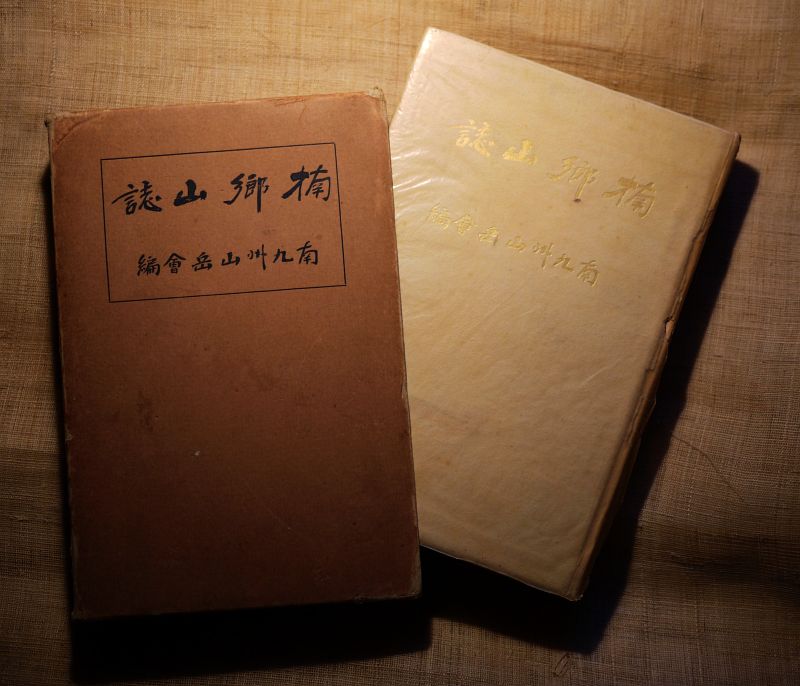 楠郷山誌
南九州山岳會編
楠郷山誌
南九州山岳會編